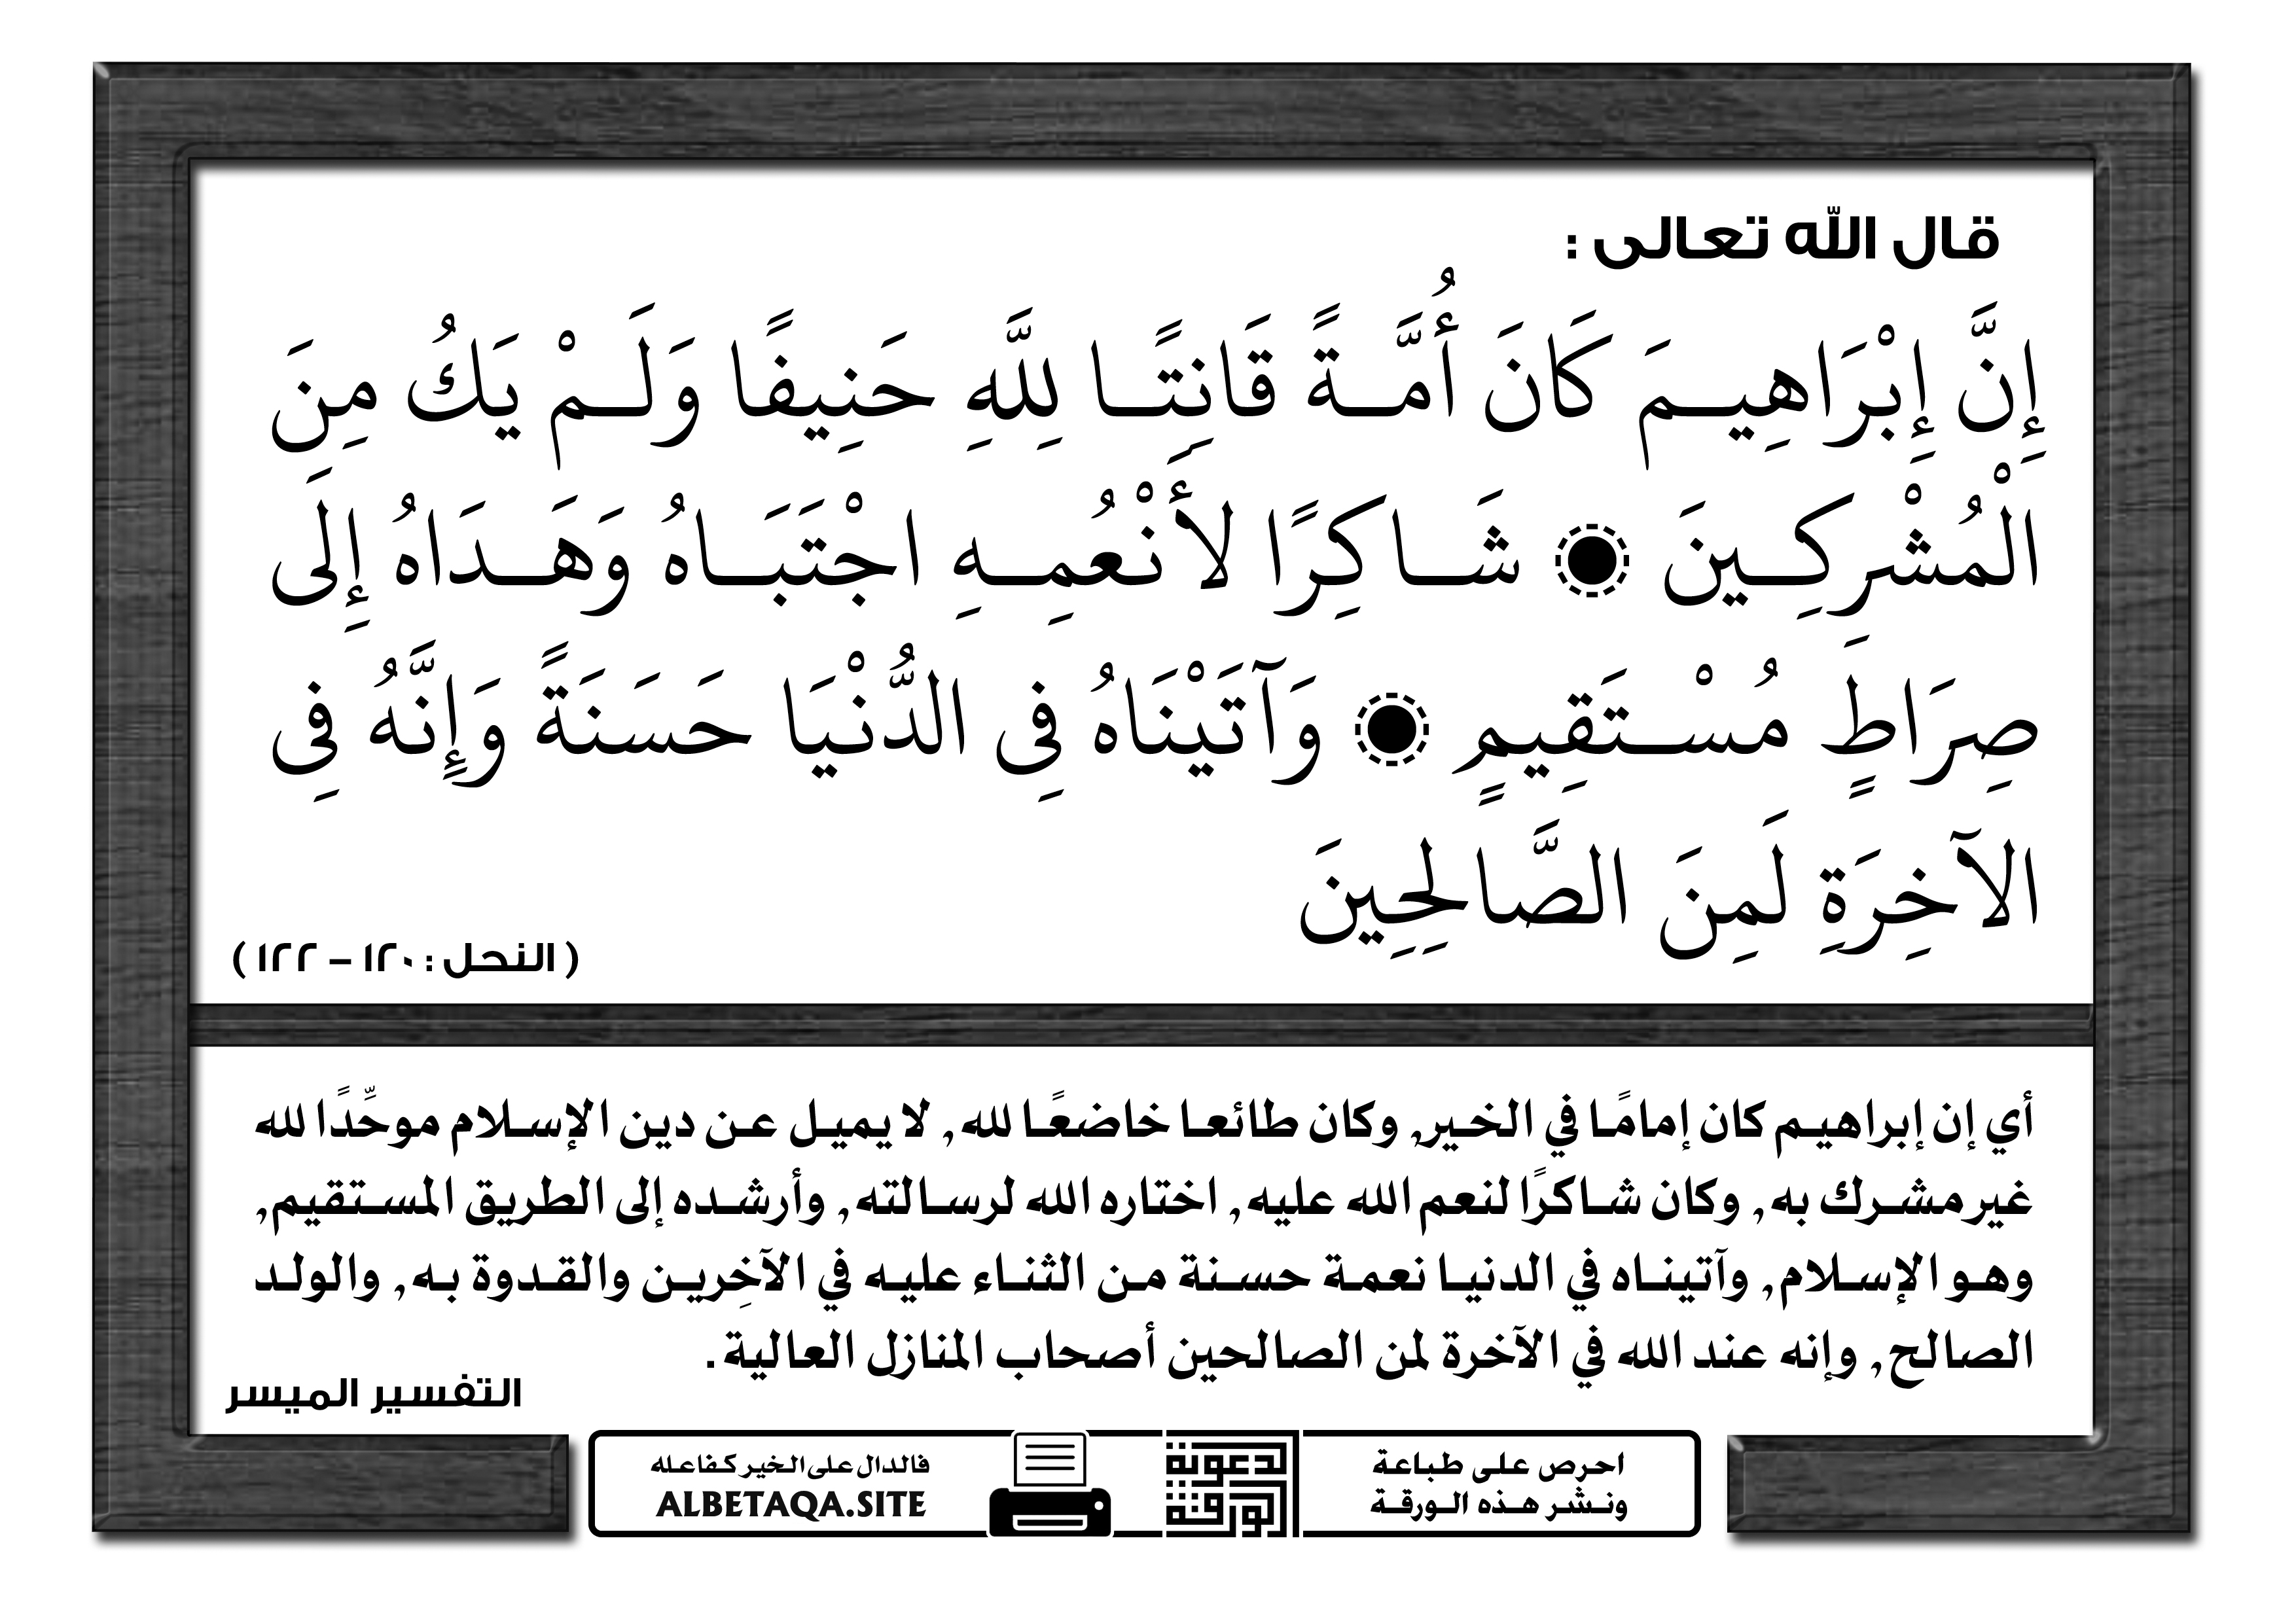 قال الله تعالى :
إِنَّ إِبْرَاهِيمَ كَانَ أُمَّةً قَانِتًا لِلَّهِ حَنِيفًا وَلَمْ يَكُ مِنَ
الْمُشْرِكِينَ ۝ شَاكِرًا لأَنْعُمِهِ اجْتَبَاهُ وَهَدَاهُ إِلَى
صِرَاطٍ مُسْتَقِيمٍ ۝ وَآتَيْنَاهُ فِي الدُّنْيَا حَسَنَةً وَإِنَّهُ فِي
الآخِرَةِ لَمِنَ الصَّالِحِينَ
( النحل : ١٢٠ – ١٢٢ )
أي إن إبراهيم كان إمامًا في الخير, وكان طائعا خاضعًا لله, لا يميل عن دين الإسلام موحِّدًا لله
غير مشرك به, وكان شاكرًا لنعم الله عليه, اختاره الله لرسالته, وأرشده إلى الطريق المستقيم,
وهو الإسلام, وآتيناه في الدنيا نعمة حسنة من الثناء عليه في الآخِرين والقدوة به, والولد
الصالح, وإنه عند الله في الآخرة لمن الصالحين أصحاب المنازل العالية.
التفسير الميسر
احرص على طباعة
ونشر هذه الورقة
الورقة
الدعوية
فالدال على الخير كفاعله
ALBETAQA.SITE